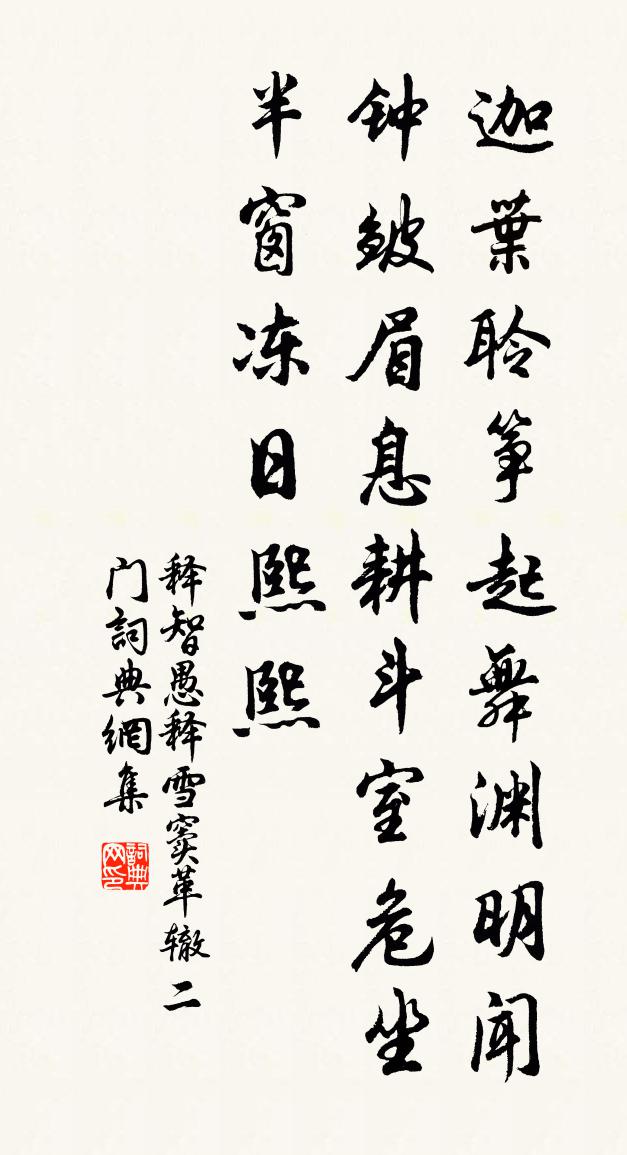 迦葉聆筝起舞渊明闻
钟皱眉息耕斗室危坐
半窗冻日熙熙
释智愚释雪窦革辙二
门詞典網集
詞典网印